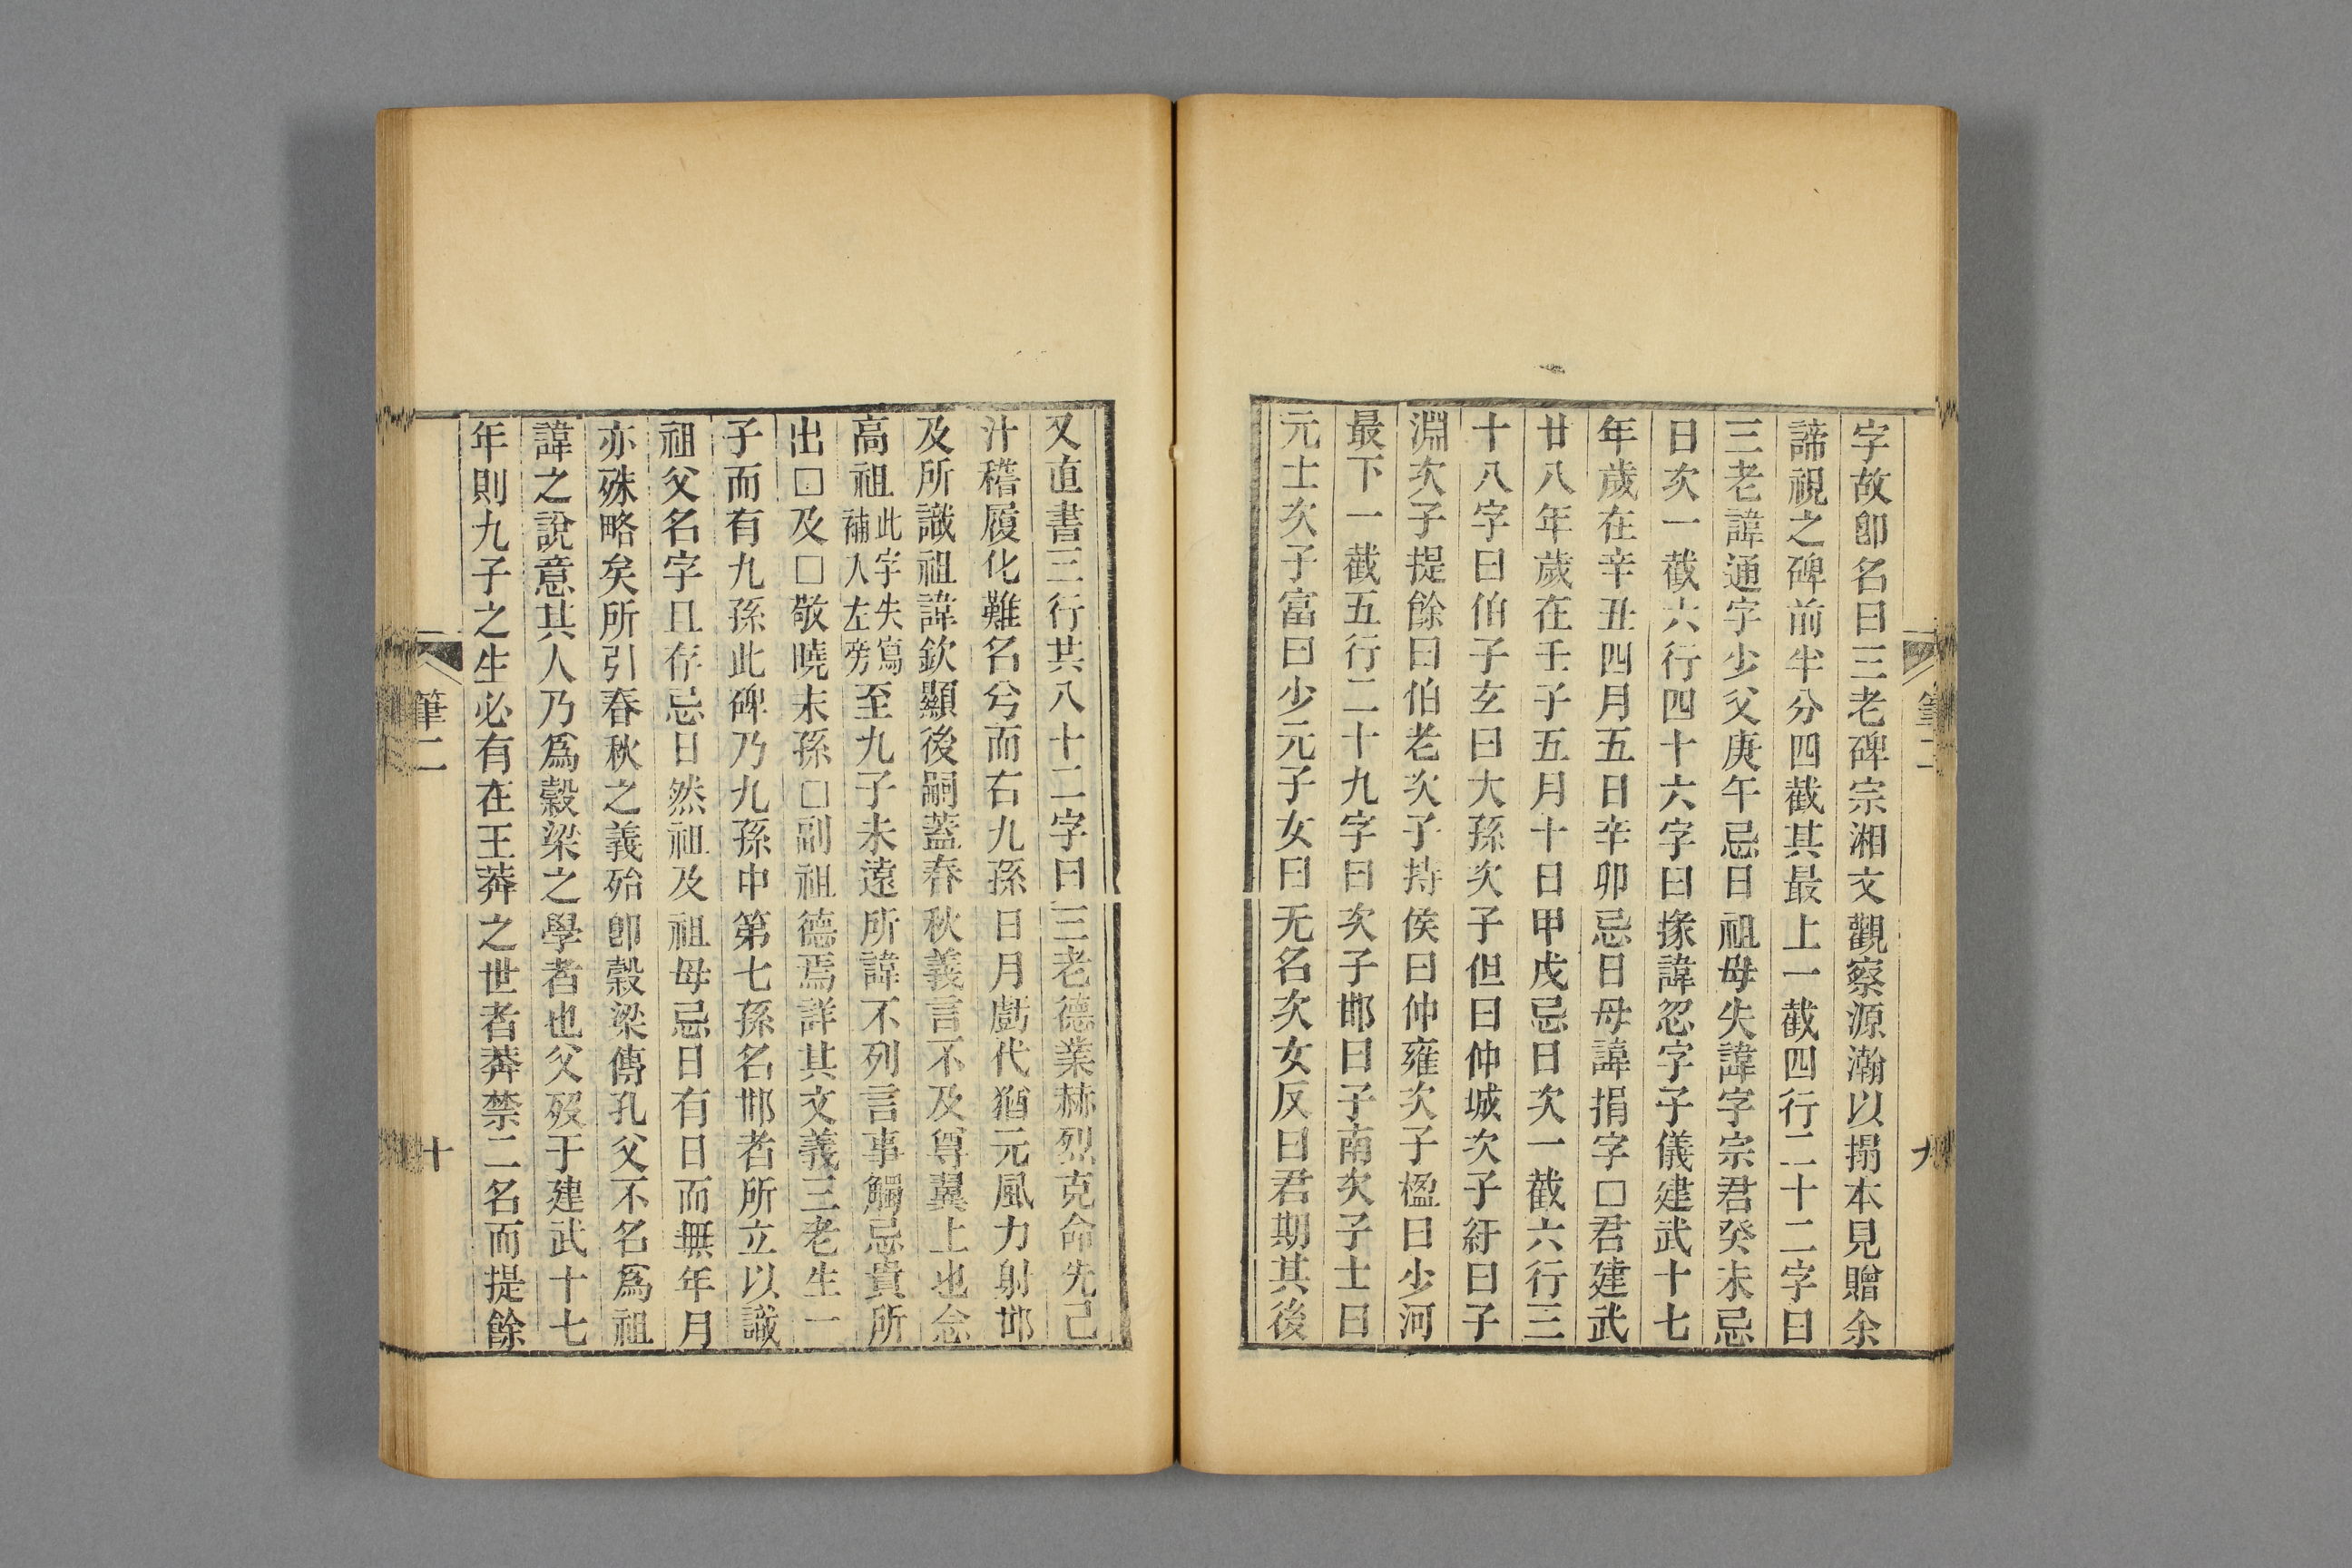 字故卽名曰三老碑宗湘文觀察源瀚以搨本見贈余
諦視之碑前半分四截其最上一截四行二十二字曰
三老諱通字少父庚午忌日祖母失諱字宗君癸未忌
日次一截六行四十六字曰掾諱忽字子儀建武十七
年歲在辛丑四月五日辛卯忌日母諱捐字□君建武
廿八年歲在壬子五月十日甲戌忌日次一截六行三
十八字曰伯子玄曰大孫次子但曰仲城次子紆曰子
淵次子提餘曰伯老次子持侯曰仲雍次子楹曰少河
最下一截五行二十九字曰次子邯曰子南次子士曰
元士次子富曰少元子女曰无名次女反曰君期其後
筆二
九
又直書三行共八十二字曰三老德業赫烈克命先己
汁稽履化難名兮而右九孫日月虧代猶元風力射邯
及所識祖諱欽顯後嗣蓋春秋義言不及尊翼上也念
高祖此字失寫補人左旁至九子未遠所諱不列言事觸忌貴所
出□及□敬曉末孫□副祖德焉詳其文義三老生一
子而有九孫此碑乃九孫中第七孫名邯者所立以識
祖父名字且存忌日然祖及祖母忌日有日而無年月
亦殊略矣所引春秋之義殆卽穀梁傳孔父不名爲祖
諱之說意其人乃爲穀梁之學者也父歿于建武十七
年則九子之生必有在王莽之世者莽禁二名而提餘
筆二
十